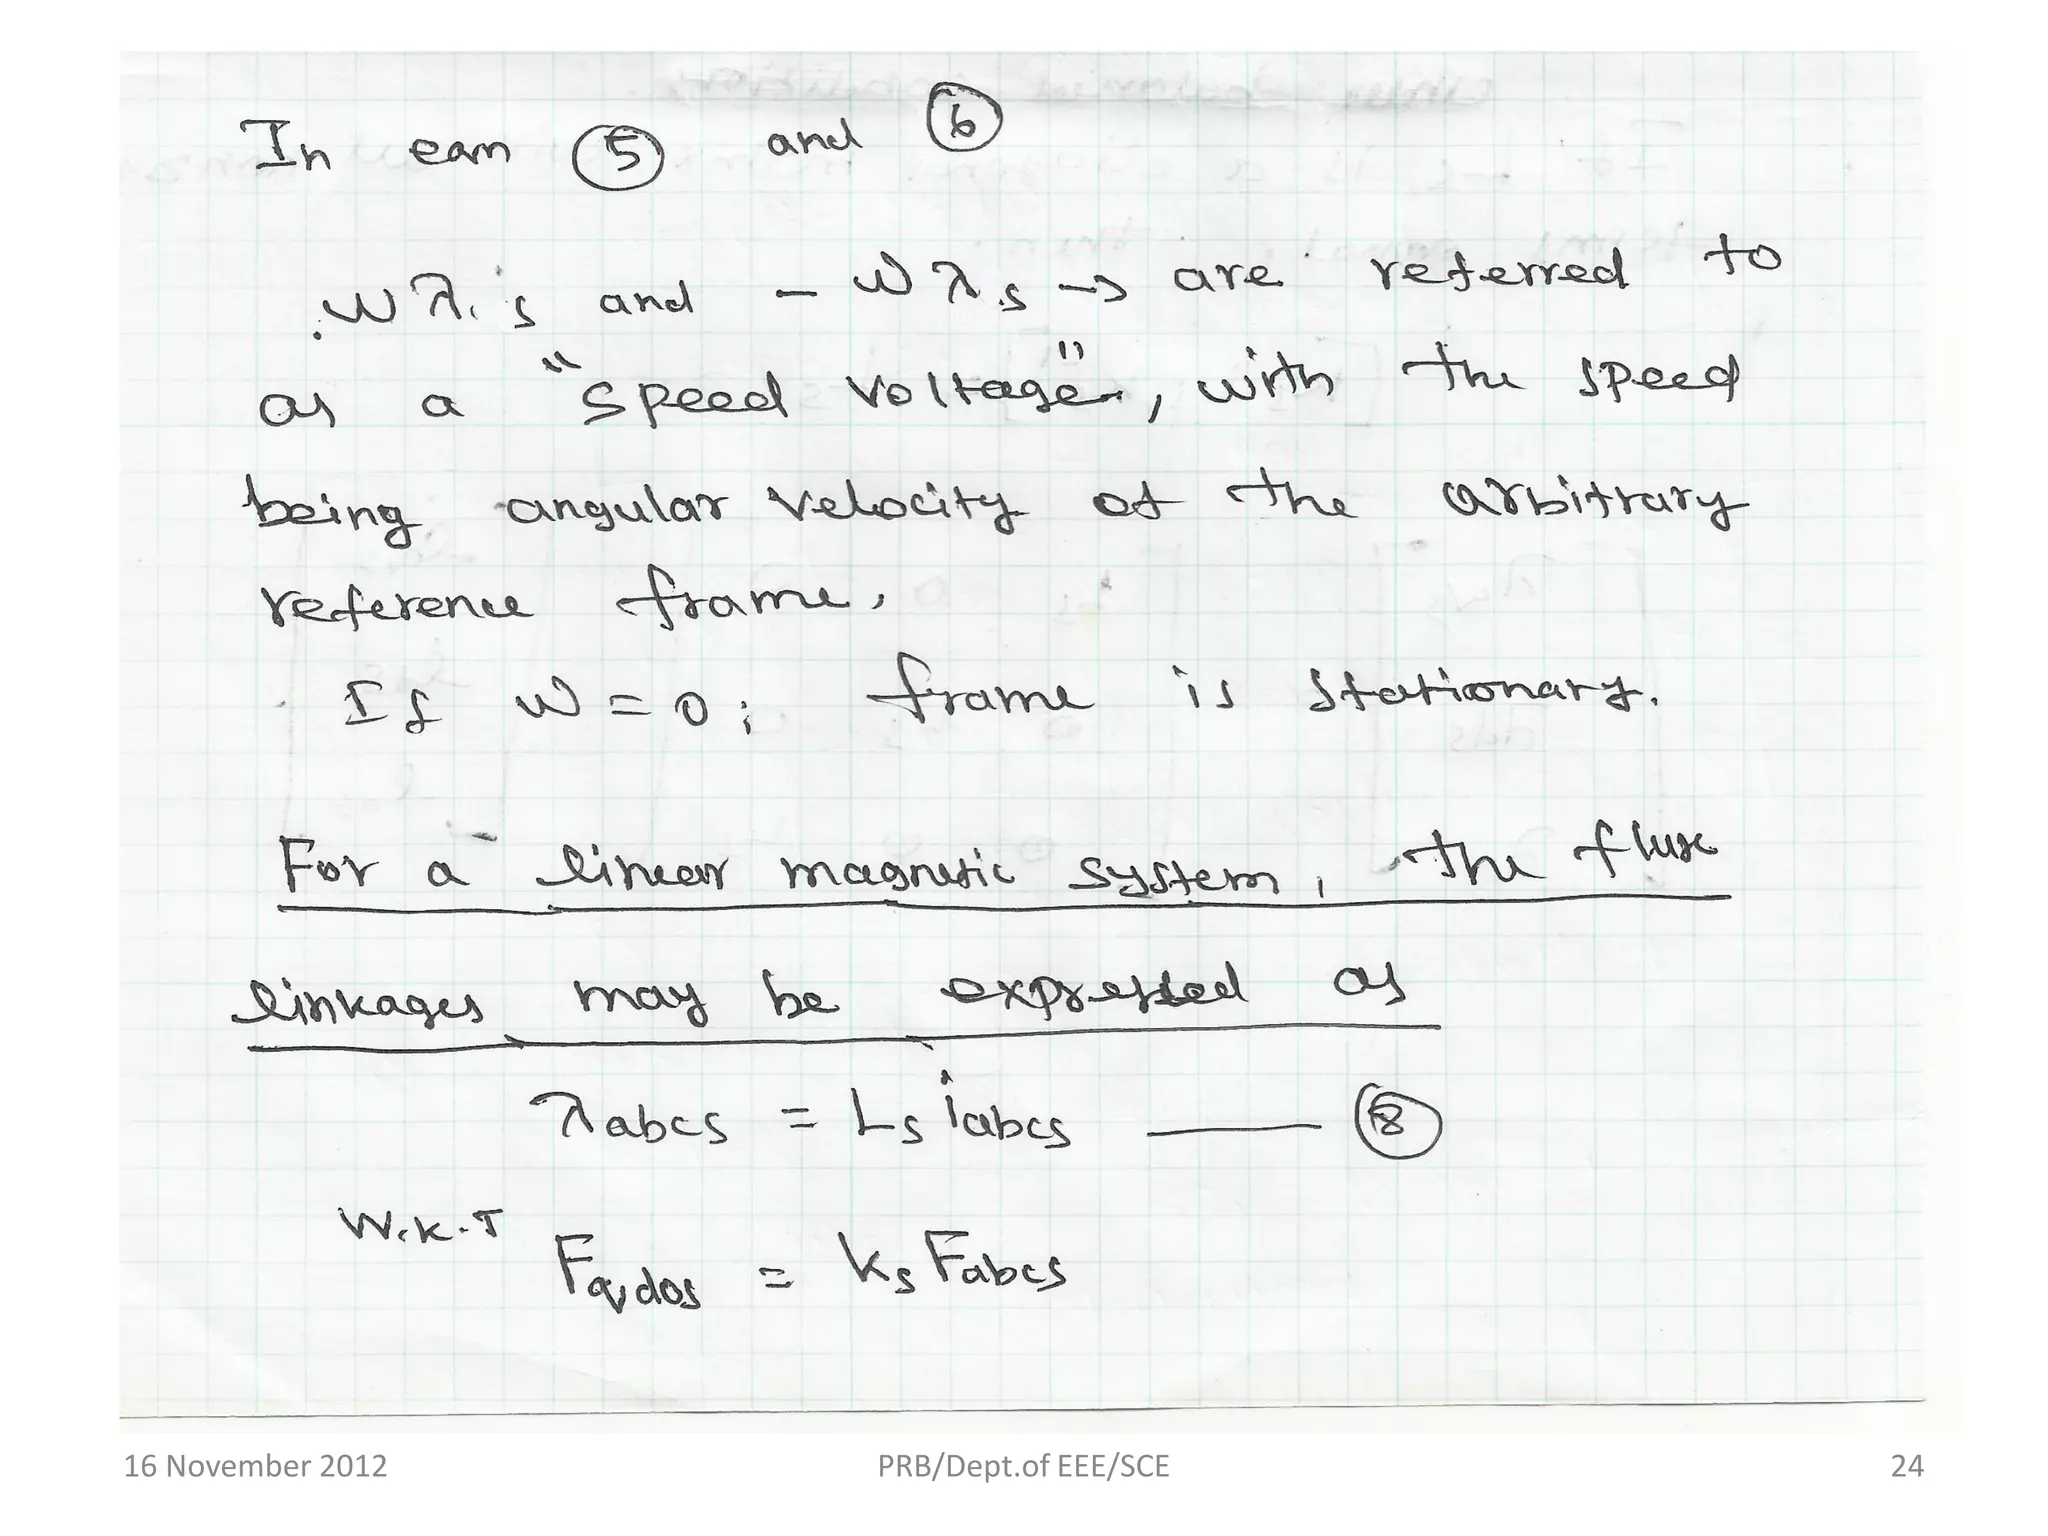 In eqn ⑤ and ⑥
ωλ's and - ωλs → are referred to
as a "speed voltage", with the speed
being angular velocity of the arbitrary
reference frame.
If ω = 0; frame is stationary.
For a linear magnetic system, the flux
linkages may be expressed as
λabcs = Ls iabcs —— ⑧
W.K.T
Fqdos = Ks Fabcs
16 November 2012 PRB/Dept.of EEE/SCE 24